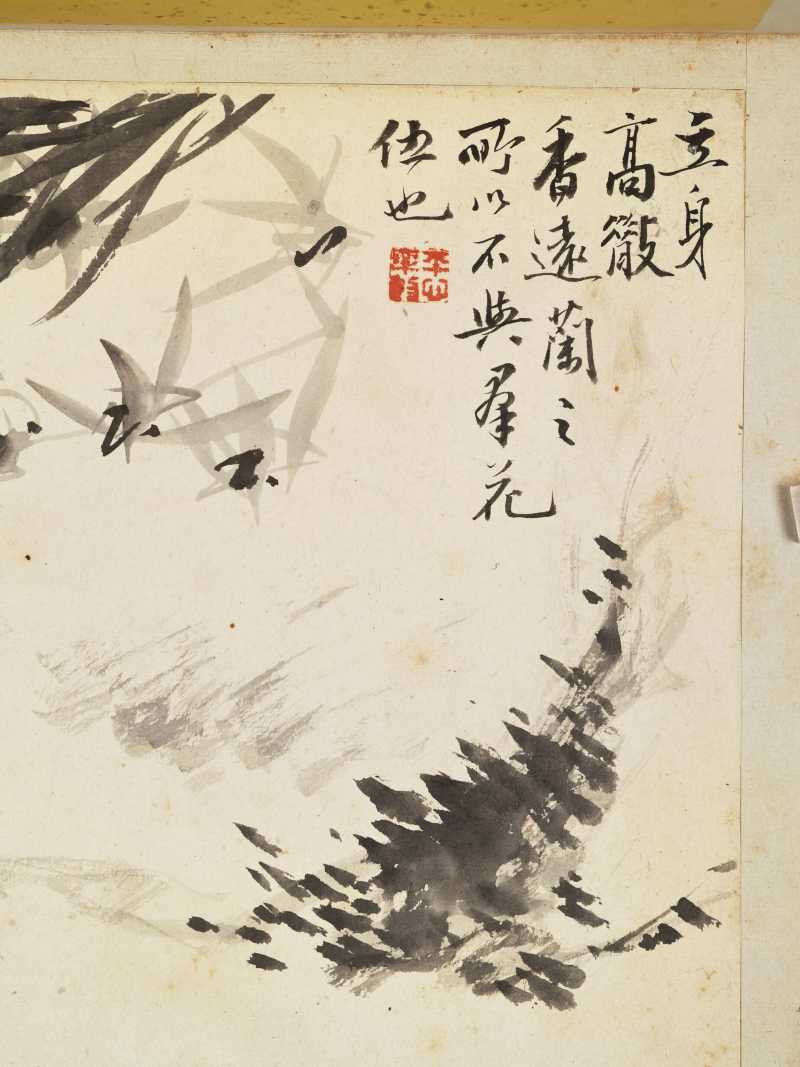 立身
高散
香遠蘭之
所以不與羣花
伍也